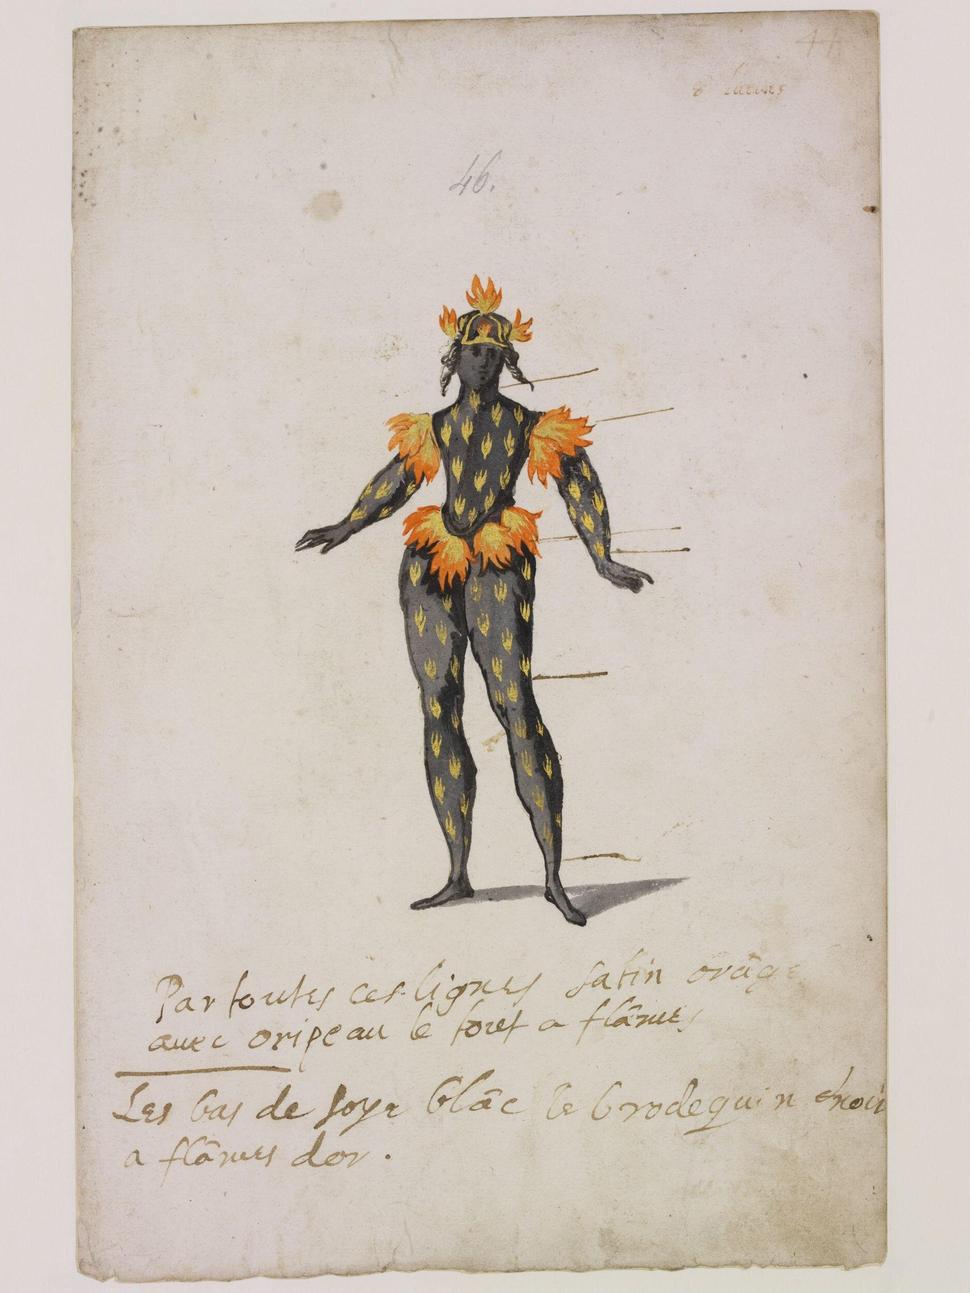 44
8
46.
Par toutes ces lignes satin orãge
avec oripeau le tout a flãmes
Les bas de soye blãc le brodequin
a flãmes dor.